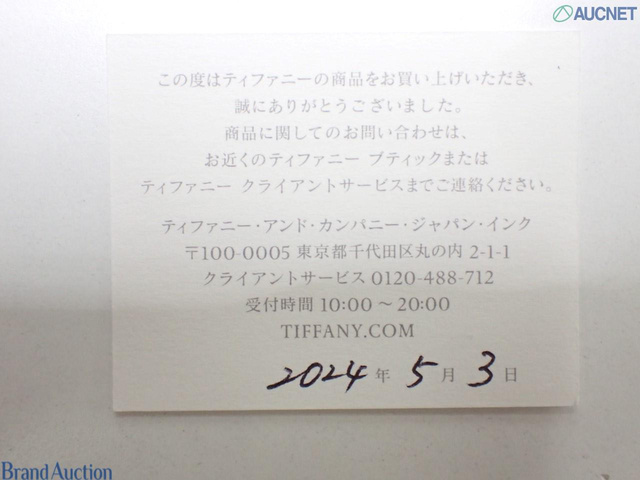 AUCNET
この度はティファニーの商品をお買い上げいただき、
誠にありがとうございました。
商品に関してのお問い合わせは、
お近くのティファニー ブティックまたは
ティファニー クライアントサービスまでご連絡ください。
ティファニー・アンド・カンパニー・ジャパン・インク
〒100-0005 東京都千代田区丸の内 2-1-1
クライアントサービス 0120-488-712
受付時間 10:00 〜 20:00
TIFFANY.COM
2024 年 5 月 3 日
Brand Auction